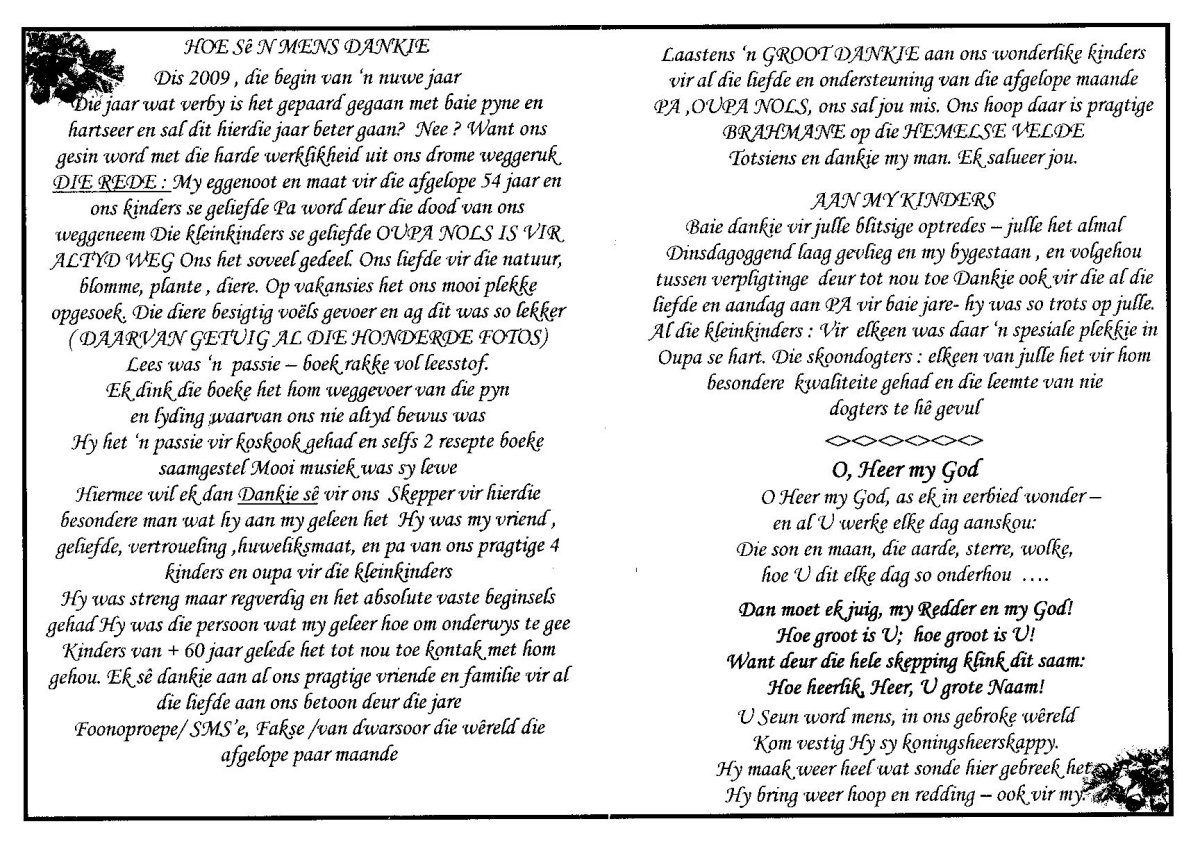 HOE Sê N MENS DANKIE
Dis 2009 , die begin van ‘n nuwe jaar
Die jaar wat verby is het gepaard gegaan met baie pyne en
hartseer en sal dit hierdie jaar beter gaan? Nee ? Want ons
gesin word met die harde werklikheid uit ons drome weggeruk
DIE REDE : My eggenoot en maat vir die afgelope 54 jaar en
ons kinders se geliefde Pa word deur die dood van ons
weggeneem Die kleinkinders se geliefde OUPA NOLS IS VIR
ALTYD WEG Ons het soveel gedeel. Ons liefde vir die natuur,
blomme, plante , diere. Op vakansies het ons mooi plekke
opgesoek. Die diere besigtig voëls gevoer en ag dit was so lekker
( DAARVAN GETUIG AL DIE HONDERDE FOTOS)
Lees was ‘n passie – boek rakke vol leesstof.
Ek dink die boeke het hom weggevoer van die pyn
en lyding ,waarvan ons nie altyd bewus was
Hy het ‘n passie vir koskook gehad en selfs 2 resepte boeke
saamgestel Mooi musiek was sy lewe
Hiermee wil ek dan Dankie sê vir ons Skepper vir hierdie
besondere man wat hy aan my geleen het Hy was my vriend ,
geliefde, vertroueling ,huweliksmaat, en pa van ons pragtige 4
kinders en oupa vir die kleinkinders
Hy was streng maar regverdig en het absolute vaste beginsels
gehad Hy was die persoon wat my geleer hoe om onderwys te gee
Kinders van + 60 jaar gelede het tot nou toe kontak met hom
gehou. Ek sê dankie aan al ons pragtige vriende en familie vir al
die liefde aan ons betoon deur die jare
Foonoproepe/ SMS’e, Fakse /van dwarsoor die wêreld die
afgelope paar maande
Laastens ‘n GROOT DANKIE aan ons wonderlike kinders
vir al die liefde en ondersteuning van die afgelope maande
PA ,OUPA NOLS, ons sal jou mis. Ons hoop daar is pragtige
BRAHMANE op die HEMELSE VELDE
Totsiens en dankie my man. Ek salueer jou.
AAN MY KINDERS
Baie dankie vir julle blitsige optredes – julle het almal
Dinsdagoggend laag gevlieg en my bygestaan , en volgehou
tussen verpligtinge deur tot nou toe Dankie ook vir die al die
liefde en aandag aan PA vir baie jare- hy was so trots op julle.
Al die kleinkinders : Vir elkeen was daar ‘n spesiale plekkie in
Oupa se hart. Die skoondogters : elkeen van julle het vir hom
besondere kwaliteite gehad en die leemte van nie
dogters te hê gevul
O, Heer my God
O Heer my God, as ek in eerbied wonder –
en al U werke elke dag aanskou:
Die son en maan, die aarde, sterre, wolke,
hoe U dit elke dag so onderhou ….
Dan moet ek juig, my Redder en my God!
Hoe groot is U; hoe groot is U!
Want deur die hele skepping klink dit saam:
Hoe heerlik, Heer, U grote Naam!
U Seun word mens, in ons gebroke wêreld
Kom vestig Hy sy koningsheerskappy.
Hy maak weer heel wat sonde hier gebreek het,
Hy bring weer hoop en redding – ook vir my.